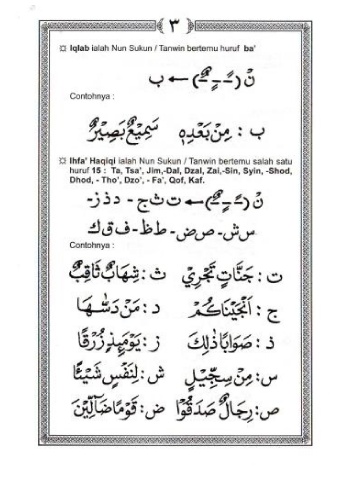 ٣
¤ Iqlab ialah Nun Sukun / Tanwin bertemu huruf ba'
نْ (ـًـ ـٍـ ـٌ) ← ب
Contohnya :
ب : مِنْ بَعْدِهٖ سَمِيْعٌ بَصِيْرٌ
¤ Ihfa' Haqiqi ialah Nun Sukun / Tanwin bertemu salah satu
huruf 15 : Ta, Tsa', Jim,-Dal, Dzal, Zai,-Sin, Syin, -Shod,
Dhod, - Tho', Dzo', - Fa', Qof, Kaf.
نْ (ـًـ ـٍـ ـٌ) ← ت ث ج - د ذ ز -
س ش - ص ض - ط ظ - ف ق ك
Contohnya :
ت : جَنَّاتٍ تَجْرِيْ ث : شِهَابٌ ثَاقِبٌ
ج : اَنْجَيْنَاكُمْ د : مَنْ دَسّٰهَا
ذ : صَوَابًا ذٰلِكَ ز : يَوْمَئِذٍ زُرْقًا
س : مِنْ سِجِّيْلٍ ش : لِنَفْسٍ شَيْئًا
ص : رِجَالٌ صَدَقُوْا ض : قَوْمًا ضَالِّيْنَ